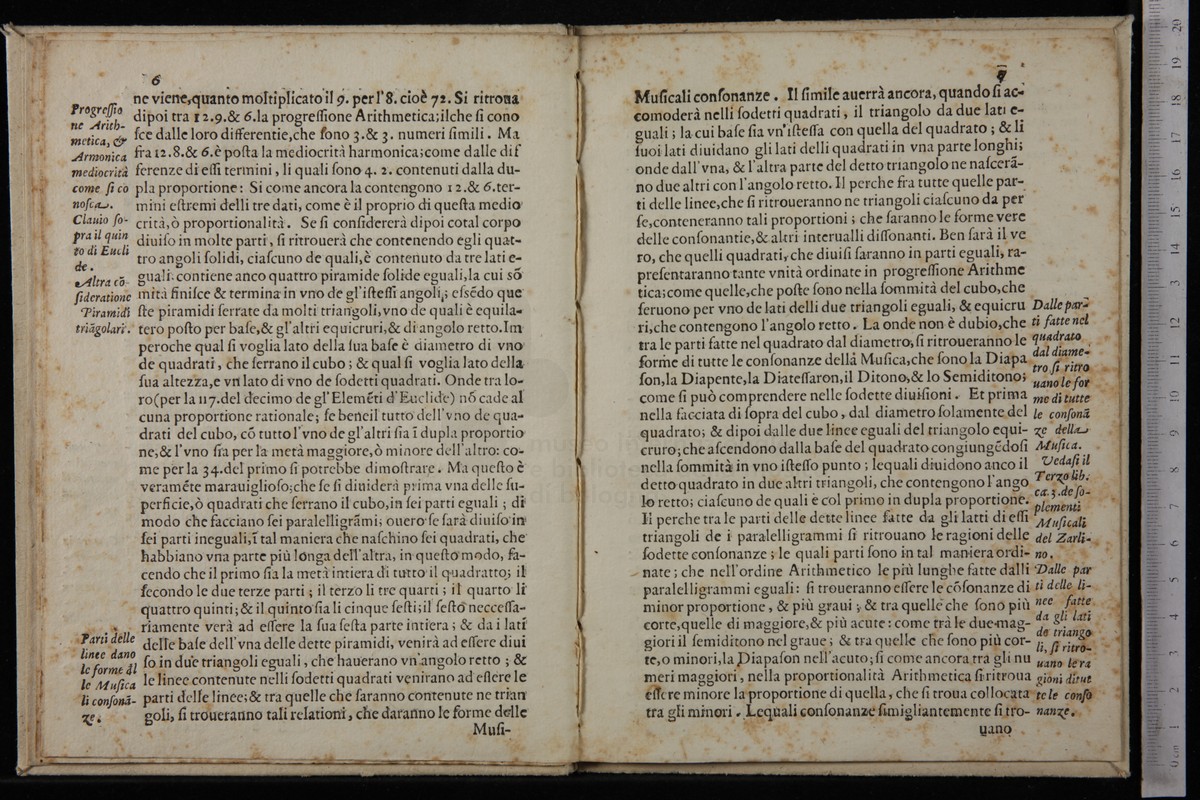 6
ne viene,quanto moltiplicato il 9. per l'8. cioè 72. Si ritroua
dipoi tra 12.9.& 6.la progreſſione Arithmetica;ilche ſi cono
ſce dalle loro differentie,che ſono 3.& 3. numeri ſimili. Ma
fra 12.8.& 6.è poſta la mediocrità harmonica;come dalle dif
ferenze di eſſi termini, li quali ſono 4. 2. contenuti dalla du-
pla proportione: Si come ancora la contengono 12.& 6.ter-
mini eſtremi delli tre dati, come è il proprio di queſta medio
crità,ò proportionalità. Se ſi conſidererà dipoi cotal corpo
diuiſo in molte parti, ſi ritrouerà che contenendo egli quat-
tro angoli ſolidi, ciaſcuno de quali,è contenuto da tre lati e-
guali: contiene anco quattro piramide ſolide eguali,la cui ſõ
mità finiſce & termina in vno de gl'iſteſſi angoli,; eſsẽdo que
ſte piramidi ſerrate da molti triangoli,vno de quali è equila-
tero poſto per baſe,& gl'altri equicruri,& di angolo retto.Im
peroche qual ſi voglia lato della ſua baſe è diametro di vno
de quadrati, che ſerrano il cubo; & qual ſi voglia lato della
ſua altezza,e vn lato di vno de ſodetti quadrati. Onde tra lo-
ro(per la 117.del decimo de gl'Elemẽti d'Euclide) nõ cade al
cuna proportione rationale; ſe bene il tutto dell'vno de qua-
drati del cubo, cõ tutto l'vno de gl'altri ſia ĩ dupla proportio
ne,& l'vno ſia per la metà maggiore,ò minore dell'altro: co-
me per la 34.del primo ſi potrebbe dimoſtrare. Ma queſto è
veramẽte marauiglioſo;che ſe ſi diuiderà prima vna delle ſu-
perficie,ò quadrati che ſerrano il cubo,in ſei parti eguali; di
modo che facciano ſei paralelligrãmi; ouero ſe ſarà diuiſo in
ſei parti ineguali,ĩ tal maniera che naſchino ſei quadrati, che
habbiano vna parte più lõnga dell'altra, in queſto modo, fa-
cendo che il primo ſia la metà intiera di tutto il quadratto; il
ſecondo le due terze parti; il terzo li tre quarti; il quarto li
quattro quinti;& il quinto ſia li cinque ſeſti;il ſeſto necceſſa-
riamente verà ad eſſere la ſua ſeſta parte intiera; & da i lati
delle baſe dell'vna delle dette piramidi, venirà ad eſſere diui
ſo in due triangoli eguali, che hauerano vn'angolo retto; &
le linee contenute nelli ſodetti quadrati venirano ad eſſere le
parti delle linee;& tra quelle che ſaranno contenute ne trian
goli, ſi troueranno tali relationi, che daranno le forme delle
Muſi-
Progreſſio
ne Arith-
metica, &
Armonica
mediocrità
come ſi co
noſca.
Clauio ſo-
pra il quin
to di Eucli
de.
Altra cõ-
ſideratione
Piramidi
triãgolari.
Parti delle
linee dano
le forme al
le Muſica
li conſonã-
ze.
Muſicali conſonanze. Il ſimile auerrà ancora, quando ſi ac-
comoderà nelli ſodetti quadrati, il triangolo da due lati e-
guali; la cui baſe ſia vn'iſteſſa con quella del quadrato; & li
ſuoi lati diuidano gli lati delli quadrati in vna parte longhi;
onde dall'vna, & l'altra parte del detto triangolo ne naſcerã-
no due altri con l'angolo retto. Il perche fra tutte quelle par-
ti delle linee,che ſi ritroueranno ne triangoli ciaſcuno da per
ſe,conteneranno tali proportioni; che ſaranno le forme vere
delle conſonantie,& altri interualli diſſonanti. Ben ſarà il ve
ro, che quelli quadrati,che diuiſi ſaranno in parti eguali, ra-
preſentaranno tante vnità ordinate in progreſſione Arithme
tica;come quelle,che poſte ſono nella ſommità del cubo,che
ſeruono per vno de lati delli due triangoli eguali, & equicru
ri,che contengono l'angolo retto. La onde non è dubio,che
tra le parti fatte nel quadrato dal diametro,ſi ritroueranno le
forme di tutte le conſonanze della Muſica,che ſono la Diapa
ſon,la Diapente,la Diateſſaron,il Ditono,& lo Semiditono;
come ſi può comprendere nelle ſodette diuiſioni. Et prima
nella facciata di ſopra del cubo, dal diametro ſolamente del
quadrato; & dipoi dalle due linee eguali del triangolo equi-
cruro;che aſcendono dalla baſe del quadrato congiungẽdoſi
nella ſommità in vno iſteſſo punto; lequali diuidono anco il
detto quadrato in due altri triangoli, che contengono l'ango
lo retto; ciaſcuno de quali è col primo in dupla proportione.
Il perche tra le parti delle dette linee fatte da gli latti di eſſi
triangoli de i paralelligrammi ſi ritrouano le ragioni delle
ſodette conſonanze; le quali parti ſono in tal maniera ordi-
nate; che nell'ordine Arithmetico le più lunghe fatte dalli
paralelligrammi eguali: ſi troueranno eſſere le cõſonanze di
minor proportione, & più graui; & tra quelle che ſono più
corte,quelle di maggiore,& più acute: come trà le due mag-
giori il ſemiditono nel graue; & tra quelle che ſono più cor-
te,o minori,la Diapaſon nell'acuto;ſi come ancora tra gli nu
meri maggiori, nella proportionalità Arithmetica ſi ritroua
eſſere minore la proportione di quella, che ſi troua collocata
tra gli minori. Lequali conſonanze ſimigliantemente ſi tro-
uano
Dalle par-
ti fatte nel
quadrato
dal diame-
tro ſi ritro
uano le for
me di tutte
le conſonã
ze della
Muſica.
Vedaſi il
Terzo lib.
ca.3.de ſo-
plementi
Muſicali
del Zarli-
no.
Dalle par
ti delle li-
nee fatte
da gli lati
de triango
li, ſi ritro-
uano le ra
gioni di tut
te le conſo
nanze.